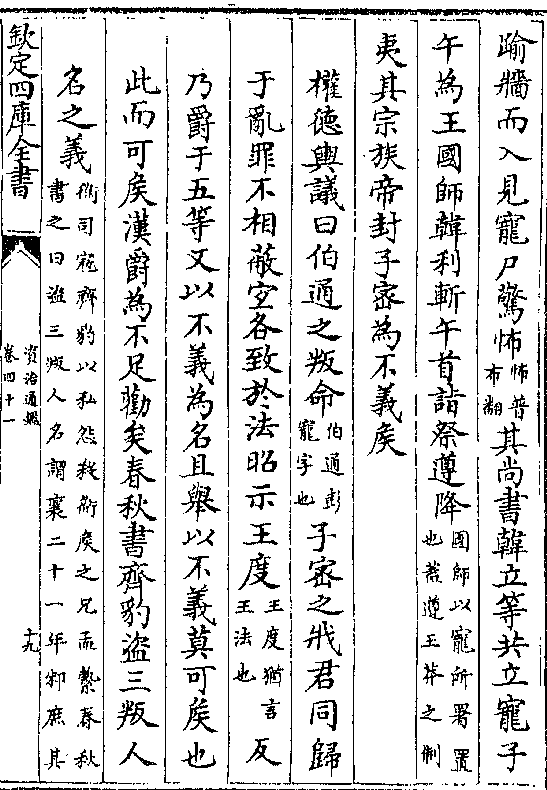 踰牆而入見寵尸驚怖怖普布翻其尚書韓立等共立寵子
午為王國師韓利斬午首詣祭遵降國師以寵所署置也蓋遵王莽之制
夷其宗族帝封子密為不義侯
權德輿議曰伯通之叛命伯通彭寵字也子密之戕君同歸
于亂罪不相蔽宜各致於法昭示王度王度猶言王法也反
乃爵于五等又以不義為名且舉以不義莫可侯也
此而可侯漢爵為不足勸矣春秋書齊豹盜三叛人
名之義衛司寇齊豹以私怨殺衛侯之兄而縶春秋書之曰盜三叛人名謂襄二十一年邾庶其
欽定四庫全書
資治通鑑
卷四十一
十九